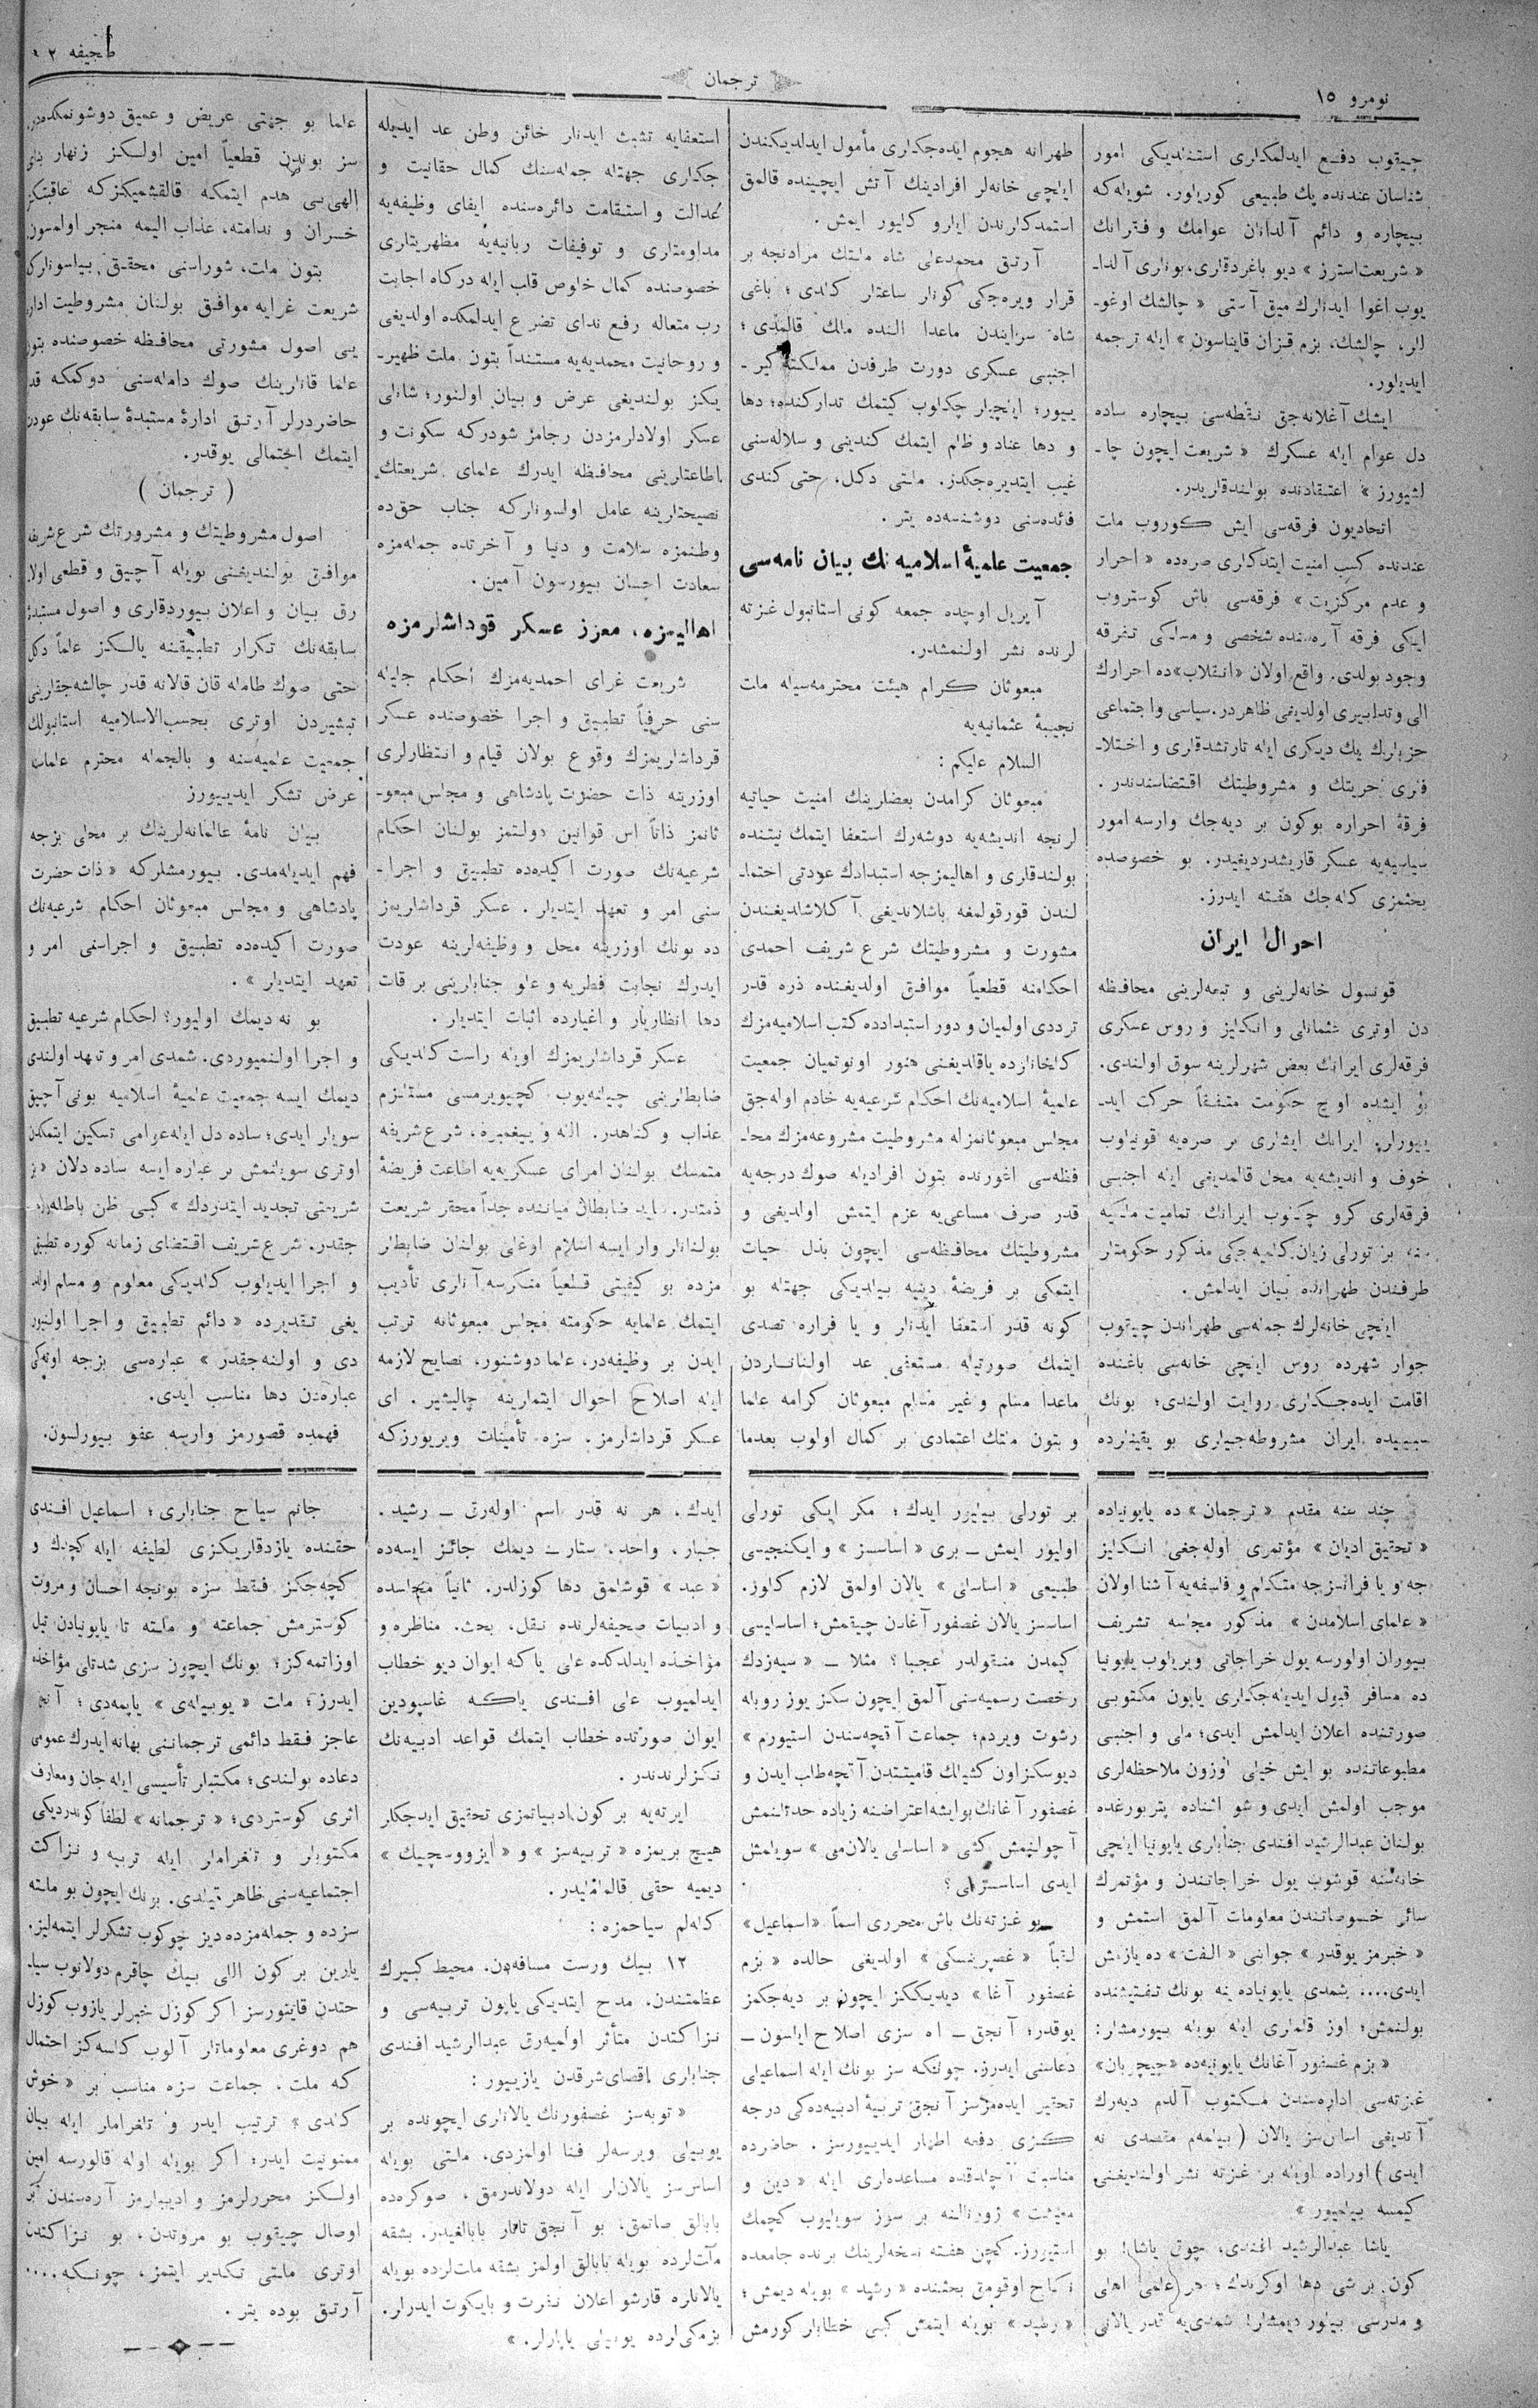 نومرو ١٥
ترجمان
صحیفه ٣
چیقوب دفع ایدلمكلری استنلدیكی امور
شناسان عندنده پك طبیعی كوریلور. شویله‌كه
بیچاره و دائم آلدانان عوامك و فقرانك
« شریعت استرز » دیو باغردقلری، بونلری آلدا۔
یوب اغوا ایدنلرك میق آستی « چالشك اوغو۔
للر، چالشك، بزم قزان قایناسون » ایله ترجمه
ایدیلور.
ایشك آغلانه‌جق نقطه‌سی بیچاره ساده
دل عوام ایله عسكرك « شریعت ایچون چا۔
لشیورز » اعتقادنده بولندقلریدر.
اتحادیون فرقه‌سی ایش كوروب ملت
عندنده كسب امنیت ایتدكلری صره‌ده « احرار
و عدم مركزیت » فرقه‌سی باش كوستروب
ایكی فرقه آره‌سنده شخصی و مسلكی تفرقه
وجود بولدی. واقع اولان «انقلاب»ده احرارك
الی وتدابیری اولدیغی ظاهردر. سیاسی واجتماعی
حزبلرك یك دیكری ایله تارتشدقلری و اختلا۔
فلری حریتك و مشروطیتك اقتضاسندندر.
فرقهٔ احراره بوكون بر دیه‌جك وارسه امور
سیاسیه‌یه عسكر قاریشدردیغیدر. بو خصوصده
بحثمزی كله‌جك هفته ایدرز.
احوال ایران
قونسول خانه‌لرینی و تبعه‌لرینی محافظه
دن اوتری عثمانلی و انكلیز و روس عسكری
فرقه‌لری ایرانك بعض شهرلرینه سوق اولندی.
بو ایشده اوچ حكومت متفقاً حركت اید۔
ییورلر. ایرانك ایشلری بر صره‌یه قونیلوب
خوف و اندیشه‌یه محل قالمدیغی ایله اجنبی
فرقه‌لری كرو چكیلوب ایرانك تمامیت ملكیه
سنه بر تورلی زیان كلمیه‌جكی مذكور حكومتلر
طرفندن طهرانده بیان ایدلمش.
ایلچی خانه‌لرك جمله‌سی طهراندن چیقوب
جوار شهرده روس ایلچی خانه‌سی باغنده
اقامت ایده‌جكلری روایت اولندی؛ بونك
سببیده ایران مشروطه‌جیلری بو یقینلرده
طهرانه هجوم ایده‌جكلری مأمول ایدلدیكندن
ایلچی خانه‌لر افرادینك آتش ایچینده قالمق
استمدكلرندن ایلرو كلیور ایمش.
آرتق محمدعلی شاه ملتك مرادنجه بر
قرار ویره‌جكی كونلر ساعتلر كلدی؛ باغی
شاه سراییندن ماعدا النده ملك قالمدی؛
اجنبی عسكری دورت طرفدن مملكته كیر۔
ییور؛ ایلچیلر چكلوب كیتمك تداركنده؛ دها
و دها عناد و ظلم ایتمك كندینی و سلاله‌سنی
غیب ایتدیره‌جكدر. ملتی دكل، حتی كندی
فائده‌سنی دوشنسه‌ده یتر.
جمعیت علمیهٔ اسلامیه‌نك بیان نامه‌سی
آپریل اوچده جمعه كونی استانبول غزته
لرنده نشر اولنمشدر.
مبعوثان كرام هیئت محترمه‌سیله ملت
نجیبهٔ عثمانیه‌یه
السلام علیكم:
مبعوثان كرامدن بعضلرینك امنیت حیاتیه
لرنجه اندیشه‌یه دوشه‌رك استعفا ایتمك نیتنده
بولندقلری و اهالیمزجه استبدادك عودتی احتما۔
لندن قورقولمغه باشلاندیغی آكلاشلدیغندن
مشورت و مشروطیتك شرع شریف احمدی
احكامنه قطعیاً موافق اولدیغنده ذره قدر
ترددی اولمیان و دور استبدادده كتب اسلامیه‌مزك
كلخانلرده یاقلدیغنی هنوز اونوتمیان جمعیت
علمیهٔ اسلامیه‌نك احكام شرعیه‌یه خادم اوله‌جق
مجلس مبعوثانمزله مشروطیت مشروعه‌مزك محا۔
فظه‌سی اغورنده بتون افرادیله صوك درجه‌یه
قدر صرف مساعی‌یه عزم ایتمش اولدیغی و
مشروطیتك محافظه‌سی ایچون بذل حیات
ایتمكی بر فریضهٔ دینیه بیلدیكی جهتله بو
كونه قدر استعفا ایدنلر و یا فراره تصدی
ایتمك صورتیله مستعفی عد اولنانلردن
ماعدا مسلم و غیر مسلم مبعوثان كرامه علما
و بتون ملتك اعتمادی بر كمال اولوب بعدما
استعفایه تشبث ایدنلر خائن وطن عد ایدیله
جكلری جهتله جمله‌سنك كمال حقانیت و
عدالت و استقامت دائره‌سنده ایفای وظیفه‌یه
مداومتلری و توفیقات ربانیه‌یه مظهریتلری
خصوصنده كمال خلوص قلب ایله دركاه اجابت
رب متعاله رفع ندای تضرع ایدلمكده اولدیغی
و روحانیت محمدیه‌یه مستنداً بتون ملت ظهیر۔
یكز بولندیغی عرض و بیان اولنور؛ شانلی
عسكر اولادلرمزدن رجامز شودركه سكونت و
اطاعتلرینی محافظه ایدرك علمای شریعتك
نصیحتلرینه عامل اولسونلركه جناب حق‌ده
وطنمزه سلامت و دنیا و آخرتده جمله‌مزه
سعادت احسان بیورسون آمین.
اهالیمزه، معزز عسكر قرداشلرمزه
شریعت غرای احمدیه‌مزك احكام جلیله
سنی حرفیاً تطبیق و اجرا خصوصنده عسكر
قرداشلریمزك وقوع بولان قیام و انتظارلری
اوزرینه ذات حضرت پادشاهی و مجلس مبعو۔
ثانمز ذاتاً اس قوانین دولتمز بولنان احكام
شرعیه‌نك صورت اكیده‌ده تطبیق و اجرا۔
سنی امر و تعهد ایتدیلر. عسكر قرداشلریمز
ده بونك اوزرینه محل و وظیفه‌لرینه عودت
ایدرك نجابت فطریه و علو جنابلرینی بر قات
دها انظاریار و اغیارده اثبات ایتدیلر.
عسكر قرداشلریمزك اویله راست كلدیكی
ضابطلرینی چیكنه‌یوب كچیویرمسی مستلزم
عذاب و كناهدر. الله و پیغمبره، شرع شریفه
متمسك بولنان امرای عسكریه‌یه اطاعت فریضهٔ
ذمتدر. شاید ضابطان میاننده جداً محقر شریعت
بولنانلر وار ایسه اسلام اوغلی بولنان ضابطلر
مزده بو كیفیتی قطعیاً متكرسه آنلری تأدیب
ایتمك علمایه حكومته مجلس مبعوثانه ترتب
ایدن بر وظیفه‌در، علما دوشنور، نصایح لازمه
ایله اصلاح احوال ایتملرینه چالیشیر. ای
عسكر قرداشلرمز. سزه تأمینات ویریورزكه
علما بو جهتی عریض و عمیق دوشونمكده‌در.
سز بوندن قطعیاً امین اولكز زنهار بنای
الهی‌یی هدم ایتمكه قالقشمیكزكه عاقبتكز
خسران و ندامته، عذاب الیمه منجر اولمسون.
بتون ملت، شوراسنی محقق بیلسونلركه
شریعت غرایه موافق بولنان مشروطیت اداره
یی اصول مشورتی محافظه خصوصنده بتون
علما قانلرینك صوك داملاسنی دوكمكه قدر
حاضردرلر آرتق ادارهٔ مستبدهٔ سابقه‌نك عودت
ایتمك احتمالی یوقدر.
( ترجمان )
اصول مشروطیتك و مشورتك شرع شریفه
موافق بولندیغنی بویله آچیق و قطعی اولا
رق بیان و اعلان بیوردقلری و اصول مستبدهٔ
سابقه‌نك تكرار تطبیقنه یالكز علما دكل
حتی صوك طامله قان قالانه قدر چالشه‌جقلرینی
تبشیردن اوتری بحسب الاسلامیه استانبولك
جمعیت علمیه‌سنه و بالجمله محترم علماسنه
عرض تشكر ایدییورز
بیان نامهٔ عالمانه‌لرینك بر محلی بزجه
فهم ایدیله‌مدی. بیورمشلركه « ذات حضرت
پادشاهی و مجلس مبعوثان احكام شرعیه‌نك
صورت اكیده‌ده تطبیق و اجراسنی امر و
تعهد ایتدیلر ».
بو نه دیمك اولیور؟ احكام شرعیه تطبیق
و اجرا اولنمیوردی. شمدی امر و تعهد اولندی
دیمك ایسه جمعیت علمیهٔ اسلامیه بونی آچیق
سویلر ایدی؛ ساده دل ایله عوامی تسكین ایتمكدن
اوتری سویلنمش بر عباره ایسه ساده دلان « بز
شریعتی تجدید ایتدردك » كبی ظن باطله
جقدر. شرع شریف اقتضای زمانه كوره تطبیق
و اجرا ایدیلوب كلدیكی معلوم و مسلم اولد
یغی تقدیرده « دائم تطبیق و اجرا اولنیور
دی و اولنه‌جقدر » عباره‌سی بزجه اولكی
عباره‌دن دها مناسب ایدی.
فهمده قصورمز وارسه عفو بیورلسون.
چند سنه مقدم « ترجمان » ده یاپونیاده
« تحقیق ادیان » مؤتمری اوله‌جغی انكلیز
جه و یا فرانسزجه متكلم و فلسفه‌یه آشنا اولان
« علمای اسلامدن » مذكور مجلسه تشریف
بیوران اولورسه یول خراجاتی ویریلوب یاپونیا
ده مسافر قبول ایدیله‌جكلری یاپون مكتوبی
صورتنده اعلان ایدلمش ایدی؛ ملی و اجنبی
مطبوعاتنده بو ایش خیلی اوزون ملاحظه‌لری
موجب اولمش ایدی و شو اثناده پتربورغده
بولنان عبدالرشید افندی جنابلری یاپونیا ایلچی
خانه‌سنه قوشوب یول خراجاتندن و مؤتمرك
سائر خصوصاتندن معلومات آلمق استمش و
« خبرمز یوقدر » جوابنی « الفت » ده یازمش
ایدی.... شمدی یاپونیاده ینه بونك تفتیشنده
بولنمش؛ اوز قلملری ایله بویله بیورمشلر:
« بزم غصفور آغانك یاپونیه‌ده «جیجربان»
غزته‌سی اداره‌سندن مكتوب آلدم دیه‌رك
آتدیغی اساس‌سز یالان ( بیلمه‌م مقصدی نه
ایدی ) اوراده اویله بر غزته نشر اولندیغنی
كیمسه بیلمیور »
یاشا عبدالرشید افندی، چوق یاشا! بو
كون بر شی دها اوكرندك؛ هر علمی اهلی
و مدرسی بیلور دیمشلر! شمدی‌یه قدر یالانی
بر تورلی بیلیرز ایدك؛ مكر ایكی تورلی
اولیور ایمش ــ بری « اساسسز » و ایكنجیسی
طبیعی « اساسلی » یالان اولمق لازم كلور.
اساسسز یالان غصفور آغادن چیقمش؛ اساسلیسی
كیمدن منقولدر عجبا؟ مثلا ــ « سیه‌زدك
رخصت رسمیه‌سنی آلمق ایچون سكز یوز روبله
رشوت ویردم؛ جماعت آقچه‌سندن استیورم »
دیو سكز اون كشیلك قامیتتدن آقچه طلب ایدن و
غصفور آغانك بو ایشه اعتراضنه زیاده حدتلنمش
آچولنمش كشی « اساسلی یالان‌می » سویلمش
ایدی اساسسزمی؟
بو غزته‌نك باش محرری اسماً «اسماعیل»
لقباً « غصپرینسكی » اولدیغی حالده « بزم
غصفور آغا » دیدیككز ایچون بر دیه‌جكمز
یوقدر؛ آنجق ــ اه سزی اصلاح ایلسون ــ
دعاسنی ایدرز. چونكه سز بونك ایله اسماعیلی
تحقیر ایده‌مزسز آنجق تربیهٔ ادبیه‌ده‌كی درجه
كزی دفعه اظهار ایدییورسز. حاضرده
مناسبت آچلدقده مساعده‌لری ایله « دین و
معیشت » ژورنالنه بر سوز سویلیوب كچمك
استیورز. كچن هفته نسخه‌لرینك برنده جامعده
نكاح اوقومق بحثنده « رشید » بویله دیمش؛
« رشید » بویله ایتمش كبی خطابلر كورمش
ایدك، هر نه قدر اسم اوله‌رق ــ رشید.
جبار، واحد، ستار ــ دیمك جائز ایسه‌ده
« عبد » قوشلمق دها كوزلدر. ثانیاً مجلسده
و ادبیات صحیفه‌لرنده نقل، بحث. مناظره و
مؤاخذه ایدلدكده علی یا كه ایوان دیو خطاب
ایدلمیوب علی افندی یاكه غاسپودین
ایوان صورتده خطاب ایتمك قواعد ادبیه‌نك
تكزلرندندر.
ایرته‌یه بر كون ادبیاتمزی تحقیق ایدجكلر
هیچ بریمزه « تربیه‌سز » و « ایزووسچیك »
دیمیه حقی قالمامالیدر.
كله‌لم سیاحمزه:
١٢ بیك ورست مسافه‌دن. محیط كبیرك
عظمتندن. مدح ایتدیكی یاپون تربیه‌سی و
نزاكتدن متأثر اولمیه‌رق عبدالرشید افندی
جنابلری اقصای شرقدن یازییور:
« توبه‌سز غصفورنك یالانلری ایچونده بر
یوبیلی ویرسه‌لر فنا اولمزدی، ملتی بویله
اساس‌سز یالان‌لر ایله دولاندرمق، صوكره‌ده
بابالق صاتمق، بو آنجق تاتار بابالغیدر. بشقه
ملت‌لرده بویله بابالق اولمز بشقه ملت‌لرده بویله
یالانلره قارشو اعلان نفرت و بایكوت ایدرلر.
بزمكی‌لرده یوبیلی یاپارلر. »
جانم سیاح جنابلری؛ اسماعیل افندی
حقنده یازدقلریكزی لطیفه ایله كچدك و
كچه‌جكز فقط سزه بونجه احسان و مروت
كوسترمش جماعته و ملته تا یاپونیادن تیل
اوزاتمه‌كز؛ بونك ایچون سزی شدتلی مؤاخذه
ایدرز؛ ملت « یوبیله‌ی » یاپمه‌دی؛ آنجق
عاجز فقط دائمی ترجماننی بهانه ایدرك عمومی
دعاده بولندی؛ مكتبلر تأسیسی ایله جان ومعارف
اثری كوستردی؛ « ترجمانه » لطفاً كوندردیكی
مكتوبلر و تلغراملر ایله تربیه و نزاكت
اجتماعیه‌سنی ظاهر قیلدی. بونك ایچون بو ملته
سزده و جمله‌مزده دیز چوكوب تشكرلر ایتمه‌لیز.
یارین بر كون اللی بیك چاقرم دولانوب سیا۔
حتدن قایتورسز اكر كوزل خبرلر یازوب كوزل
هم دوغری معلوماتلر آلوب كلسه‌كز احتمال
كه ملت، جماعت سزه مناسب بر « خوش
كلدی » ترتیب ایدر و تلغراملر ایله بیان
ممنونیت ایدر؛ اكر بویله اوله قالورسه امین
اولكز محررلرمز و ادیبلرمز آره‌سندن
اوصال چیقوب بو مروتدن، بو نزاكتدن
اوتری ملتی تكدیر ایتمز، چونكه....
آرتق بوده یتر.